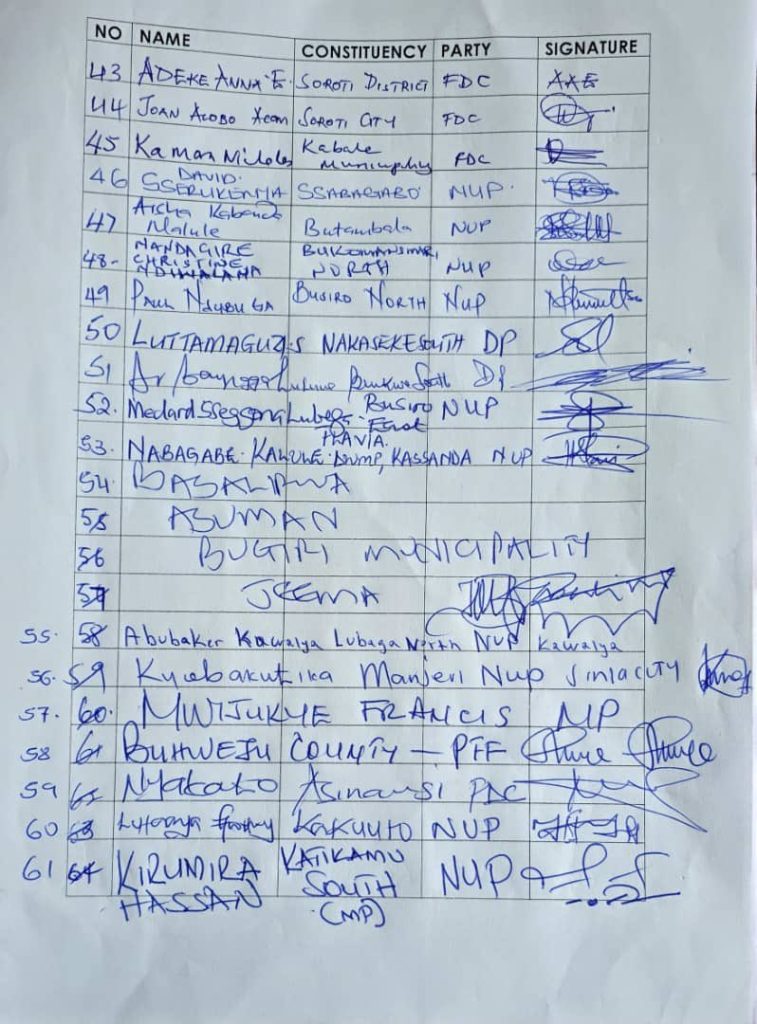 NO NAME CONSTITUENCY PARTY SIGNATURE
43 ADEKE ANNA E. SOROTI DISTRICT FDC AAE
44 JOAN ALOBO SOROTI CITY FDC
45 Kabale
Municipality FDC
46 DAVID
SSERUKENYA SSABAGABO NUP
47 Aisha Kabanda
Nalule Butambala NUP
48- NANDAGIRE
CHRISTINE
NDIWALANA BUKOMANSIMBI
NORTH NUP
49 PAUL NSUBUGA BUSIRO NORTH NUP
50 LUTTAMAGUZI S NAKASEKE SOUTH DP
51
52. Medard Sseggona Lubega Busiro
East NUP
53. NABAGABE KALULE FLAVIA. KASSANDA NUP
54. BASALIRWA
55 ASUMAN
56 BUGIRI MUNICIPALITY
57 JEEMA
55. 58 Abubaker Kawalya Lubaga North NUP Kawalya
56. 59 Kyebakutika Manjeri NUP Jinja city
57. 60. MWIJUKYE FRANCIS MP
58 61 BUHWEJU COUNTY – PFF
59 62 Nyakato Asinansi FDC
60 63 Kakuuto NUP
61 64 KIRUMIRA
HASSAN KATIKAMU
SOUTH
(MP) NUP